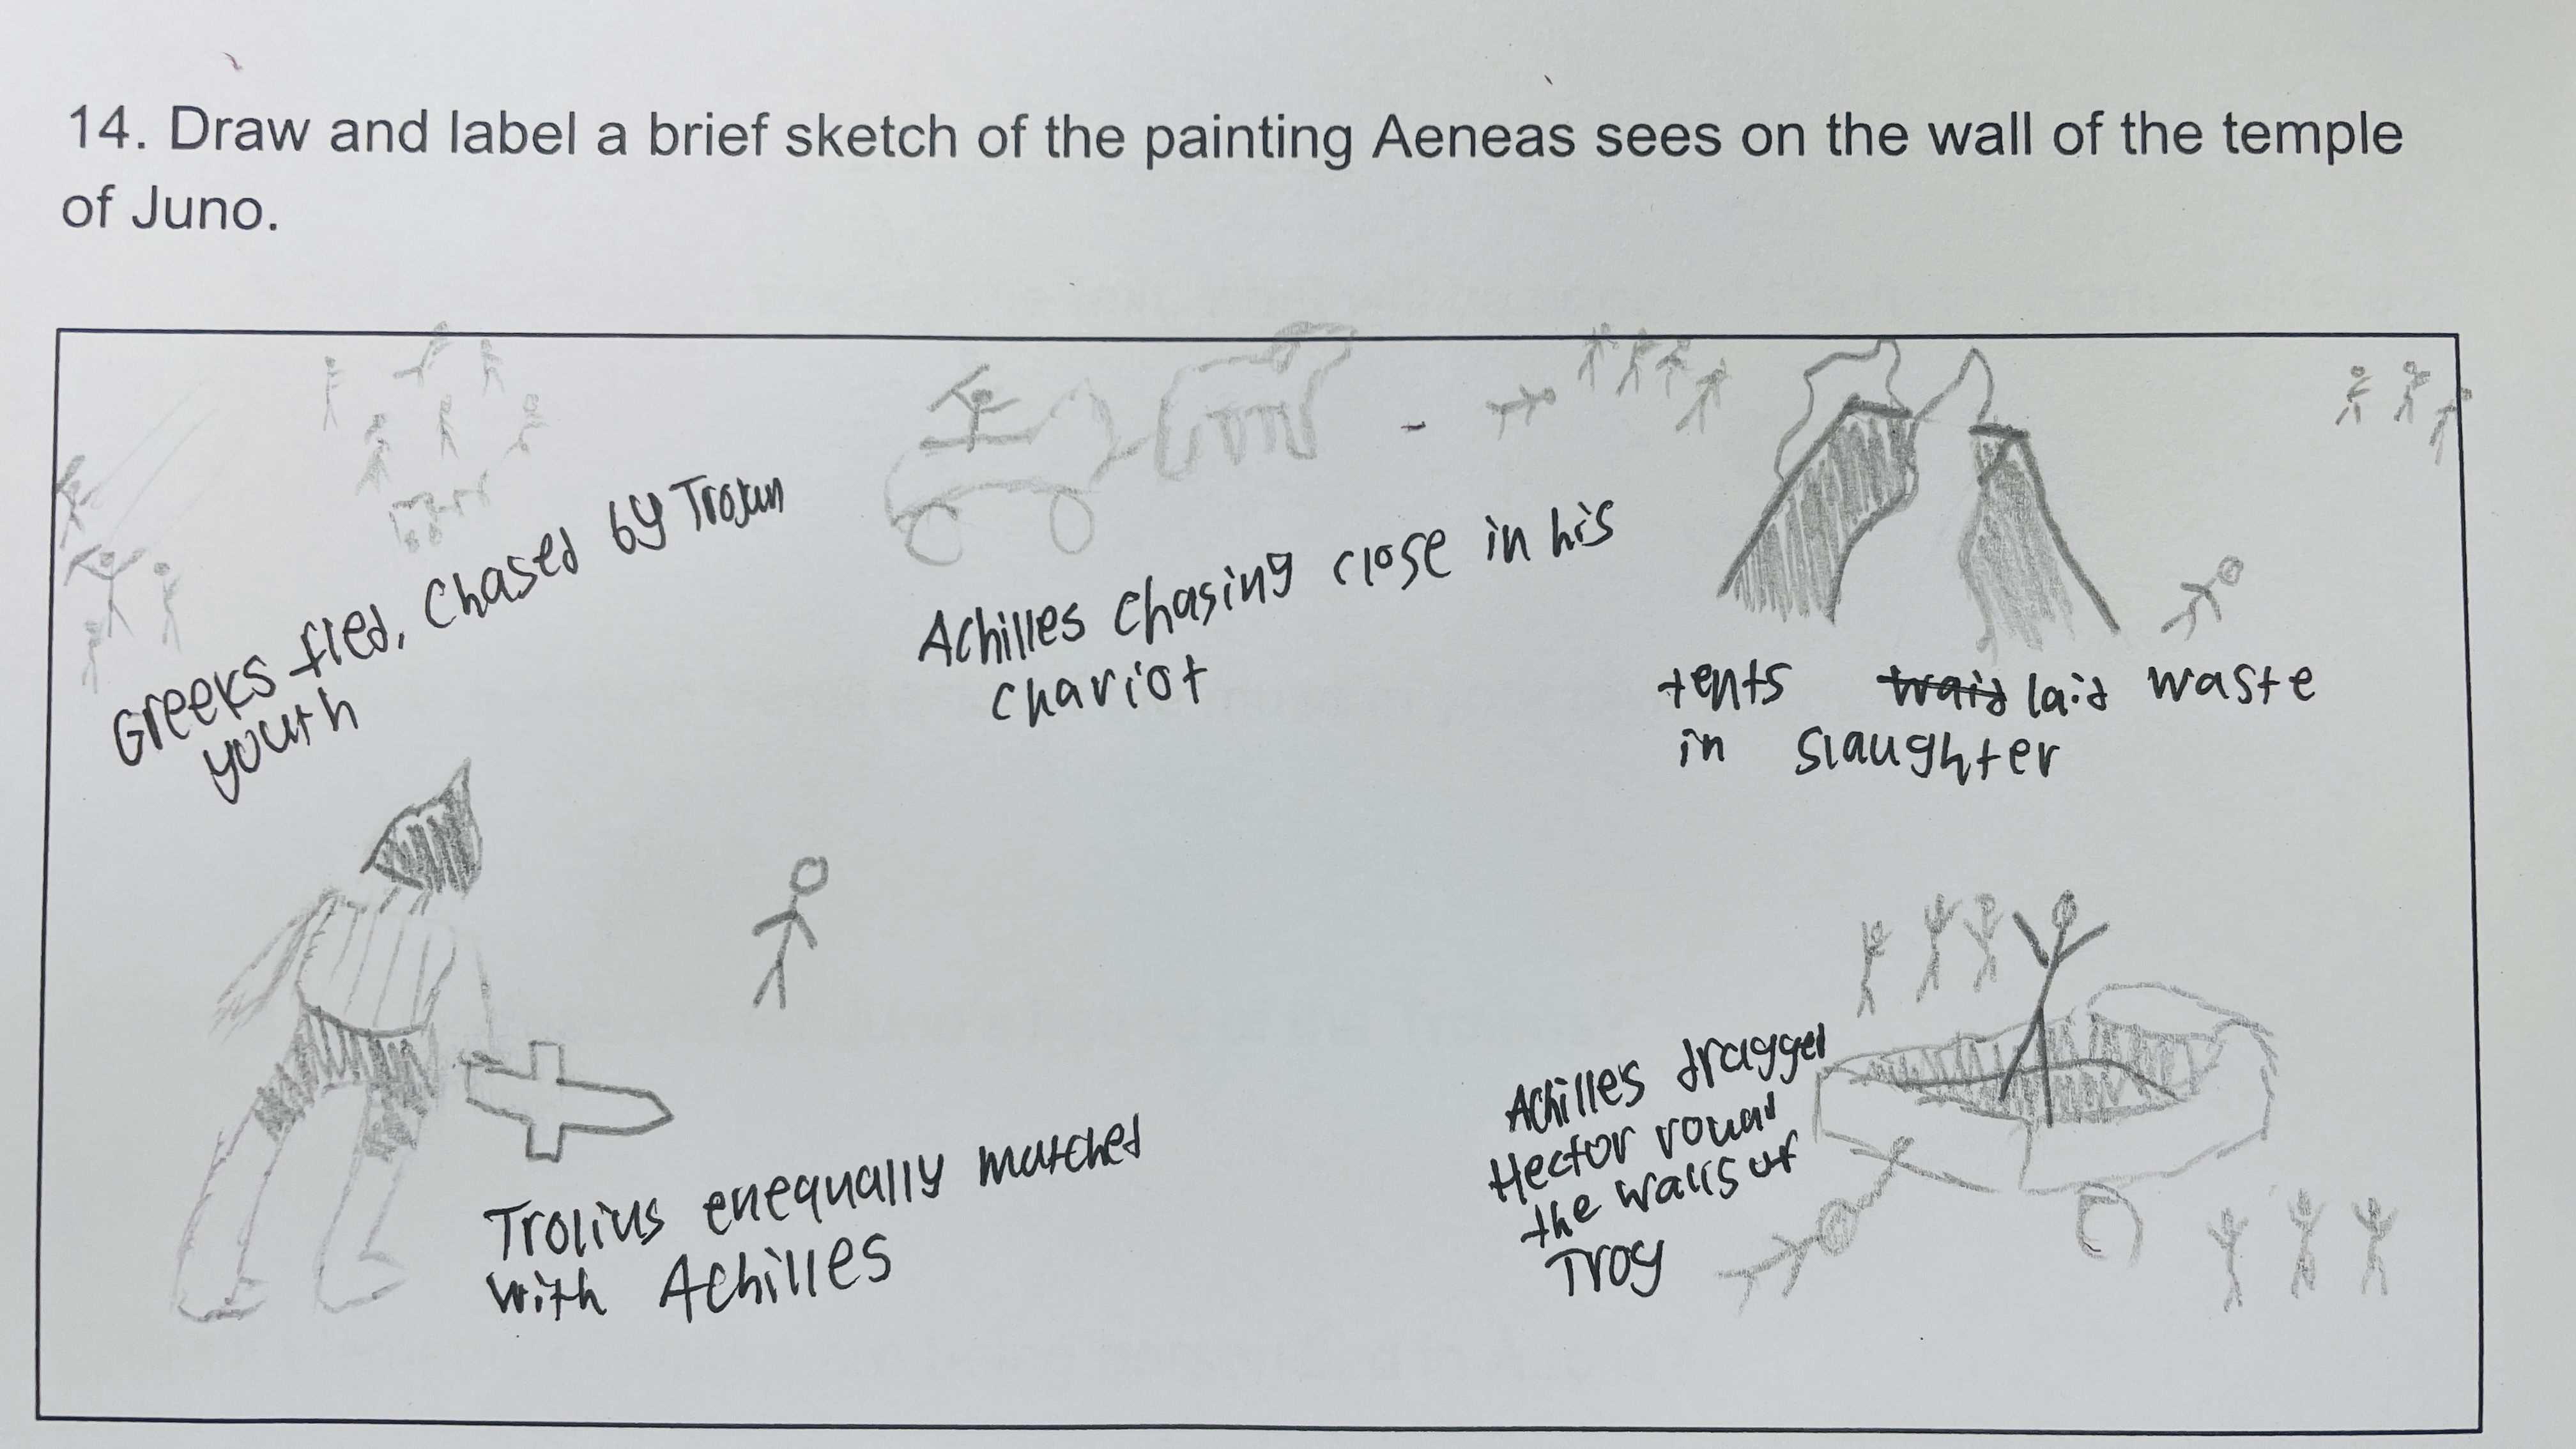 14. Draw and label a brief sketch of the painting Aeneas sees on the wall of the temple
of Juno.
Greeks fled, chased by Trojan
youth
Achilles chasing close in his
chariot
tents traid laid waste
in slaughter
Trolius enequally matched
with Achilles
Achilles dragged
Hector round
the walls of
Troy